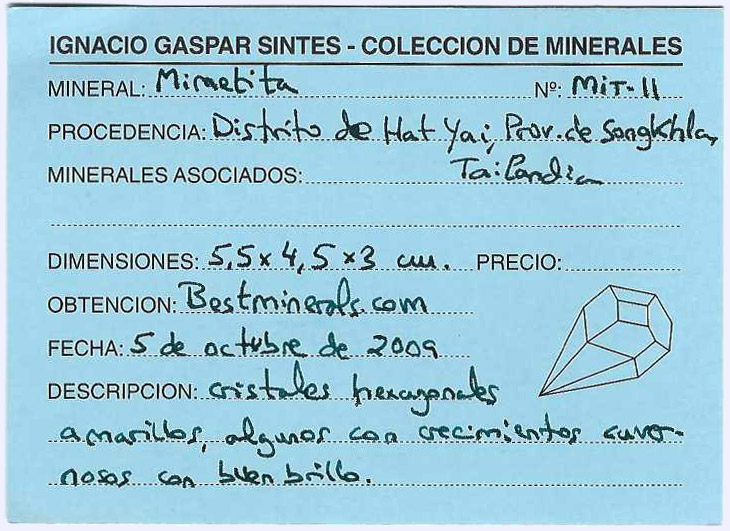 IGNACIO GASPAR SINTES - COLECCION DE MINERALES
MINERAL: Mimetita Nº: MIT-11
PROCEDENCIA: Distrito de Hat Yai, Prov. de Songkhla,
MINERALES ASOCIADOS: Tailandia
DIMENSIONES: 5,5 x 4,5 x 3 cm. PRECIO:
OBTENCION: Bestminerals.com
FECHA: 5 de octubre de 2009
DESCRIPCION: cristales hexagonales
amarillos, algunos con crecimientos caver-
nosos con buen brillo.